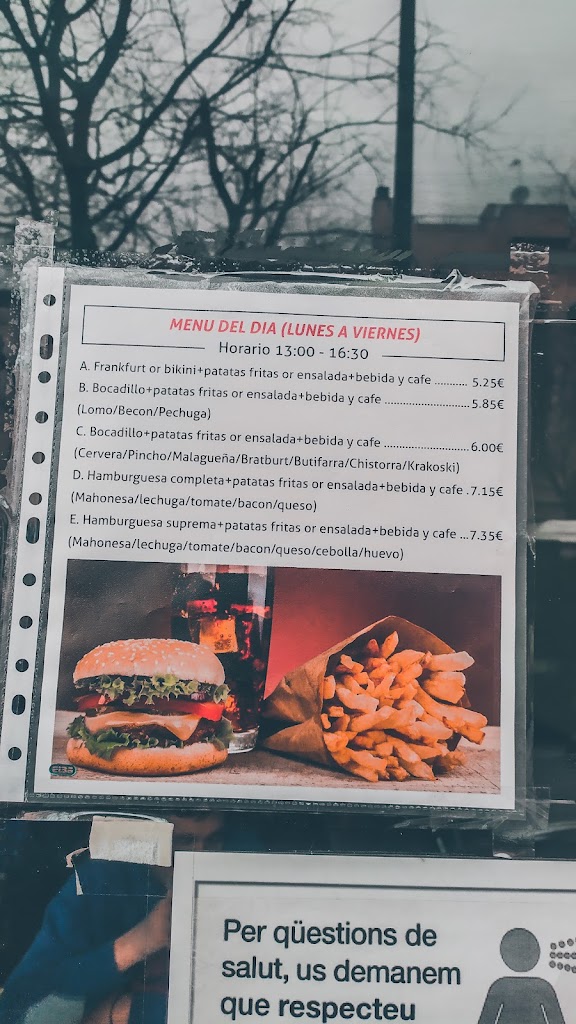 MENU DEL DIA (LUNES A VIERNES)
Horario 13:00 - 16:30
A. Frankfurt or bikini+patatas fritas or ensalada+bebida y cafe ........... 5.25€
B. Bocadillo+patatas fritas or ensalada+bebida y cafe ............................5.85€
(Lomo/Becon/Pechuga)
C. Bocadillo+patatas fritas or ensalada+bebida y cafe ............................6.00€
(Cervera/Pincho/Malagueña/Bratburt/Butifarra/Chistorra/Krakoski)
D. Hamburguesa completa+patatas fritas or ensalada+bebida y cafe .7.15€
(Mahonesa/lechuga/tomate/bacon/queso)
E. Hamburguesa suprema+patatas fritas or ensalada+bebida y cafe ...7.35€
(Mahonesa/lechuga/tomate/bacon/queso/cebolla/huevo)
Per qüestions de
salut, us demanem
que respecteu